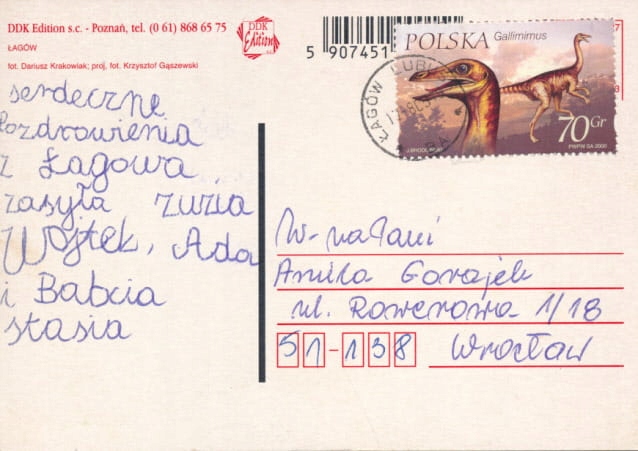 DDK Edition s.c. - Poznań, tel. (0 61) 868 65 75
ŁAGÓW
fot. Dariusz Krakowiak; proj. fot. Krzysztof Gąszewski
DDK
Edition
5 907451
POLSKA
Gallimimus
70 Gr
PWPW SA 2000
ŁAGÓW LUBU
serdeczne
Pozdrowienia
z Łagowa
zasyła zuzia
Wojtek, Ada
i Babcia
stasia
Anika
ul. Rowerowa 1/18
51-138 Wrocław